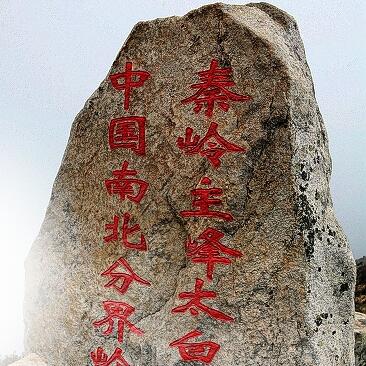 秦岭主峰太白
中国南北分界岭